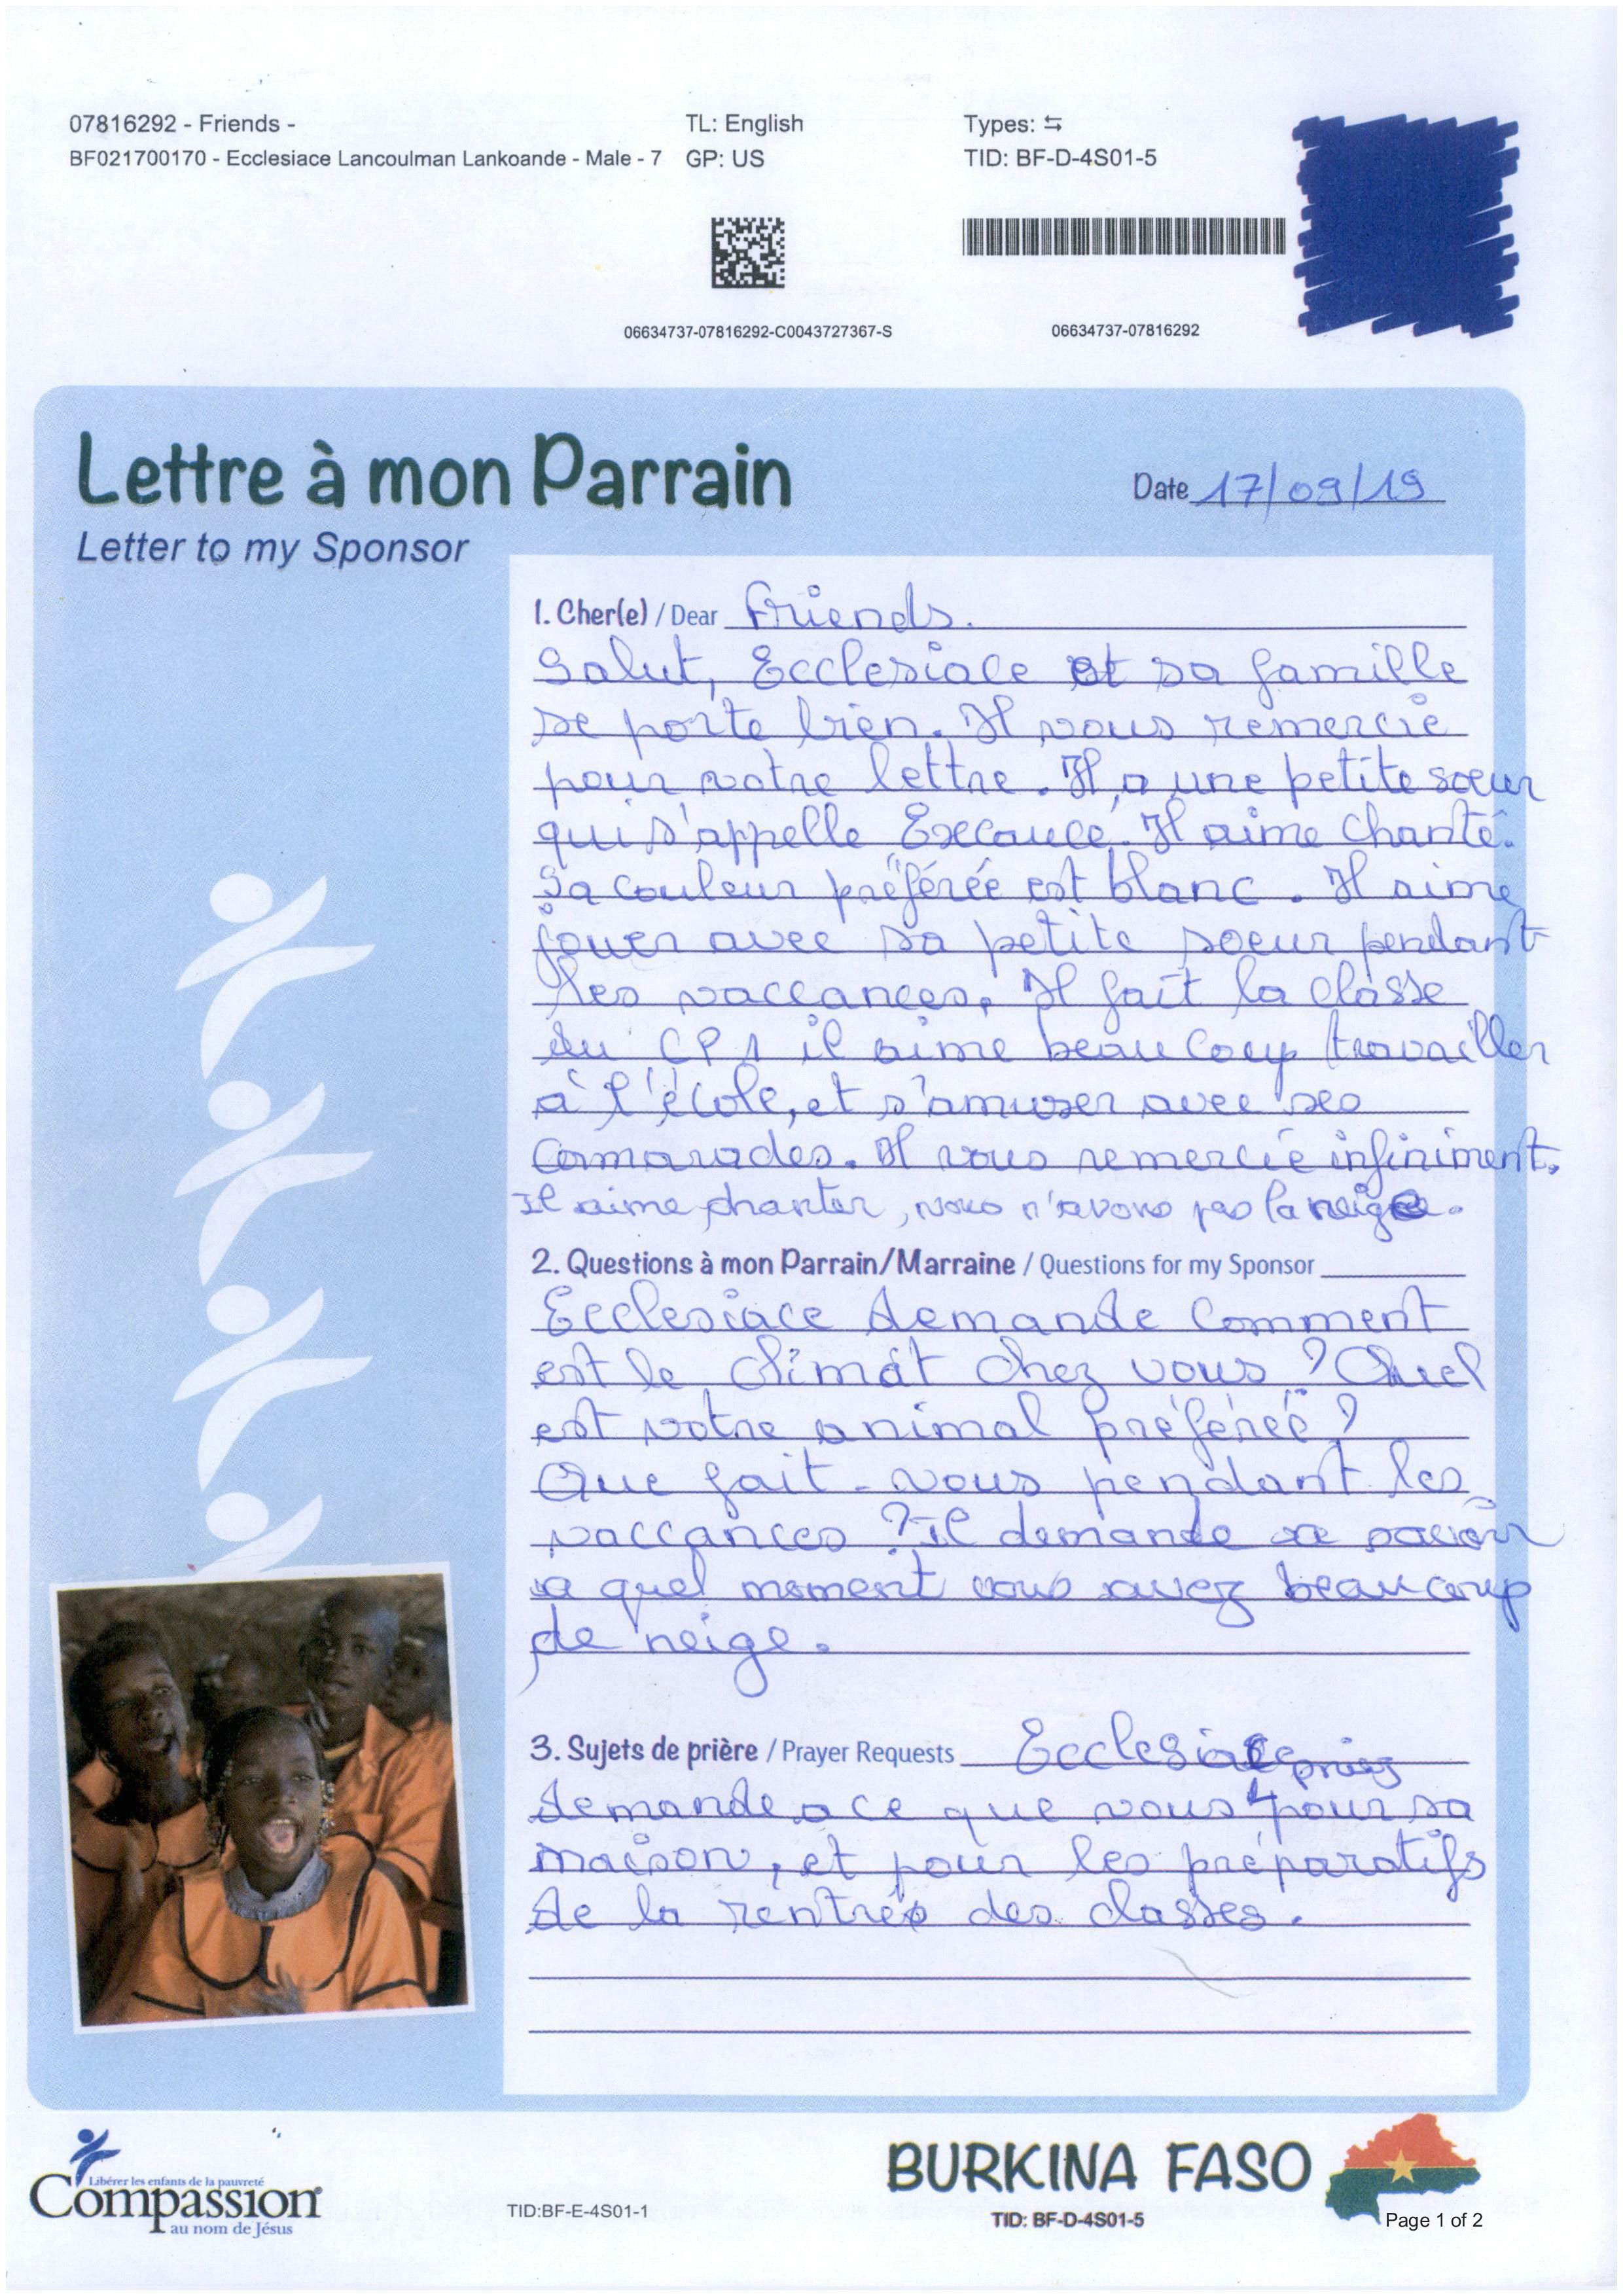 07816292 - Friends -
BF021700170 - Ecclesiace Lancoulman Lankoande - Male - 7
TL: English
GP: US
Types: ⇆
TID: BF-D-4S01-5
06634737-07816292-C0043727367-S
06634737-07816292
Lettre à mon Parrain
Letter to my Sponsor
Date 17/09/19
1. Cher(e) / Dear Friends.
Salut, Ecclesiace et sa famille
se porte bien. Il vous remercie
pour votre lettre. Il a une petite soeur
qui s'appelle Exaucé. Il aime chanté.
Sa couleur préférée est blanc. Il aime
jouer avec sa petite soeur pendant
les vaccances. Il fait la classe
du CP1 il aime beaucoup travailler
à l'école, et s'amuser avec ses
camarades. Il vous remercie infiniment.
Il aime chanter, nous n'avons pas la neige.
2. Questions à mon Parrain/Marraine / Questions for my Sponsor
Ecclesiace demande comment
est le climat chez vous ? Quel
est votre animal préféreé ?
Que fait-vous pendant les
vaccances ? Il demande a savoir
a quel moment vous avez beaucoup
de neige.
3. Sujets de prière / Prayer Requests Ecclesiace
demande a ce que vous priez pour sa
maison, et pour les préparatifs
de la rentrée des classes.
Libérer les enfants de la pauvreté
Compassion
au nom de Jésus
TID:BF-E-4S01-1
BURKINA FASO
TID: BF-D-4S01-5
Page 1 of 2